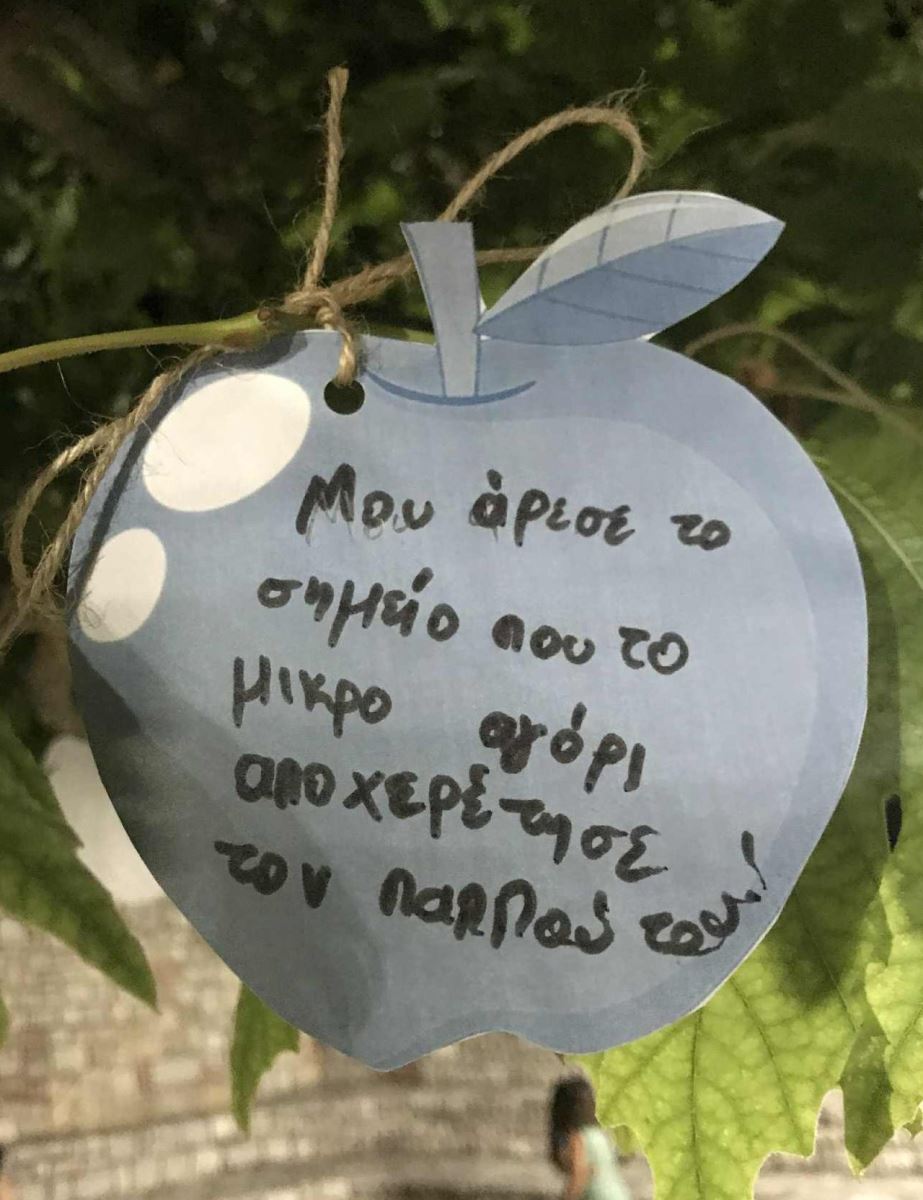 Μου άρεσε το
σημείο που το
μικρο αγόρι
αποχερέτησε
τον παππού του!